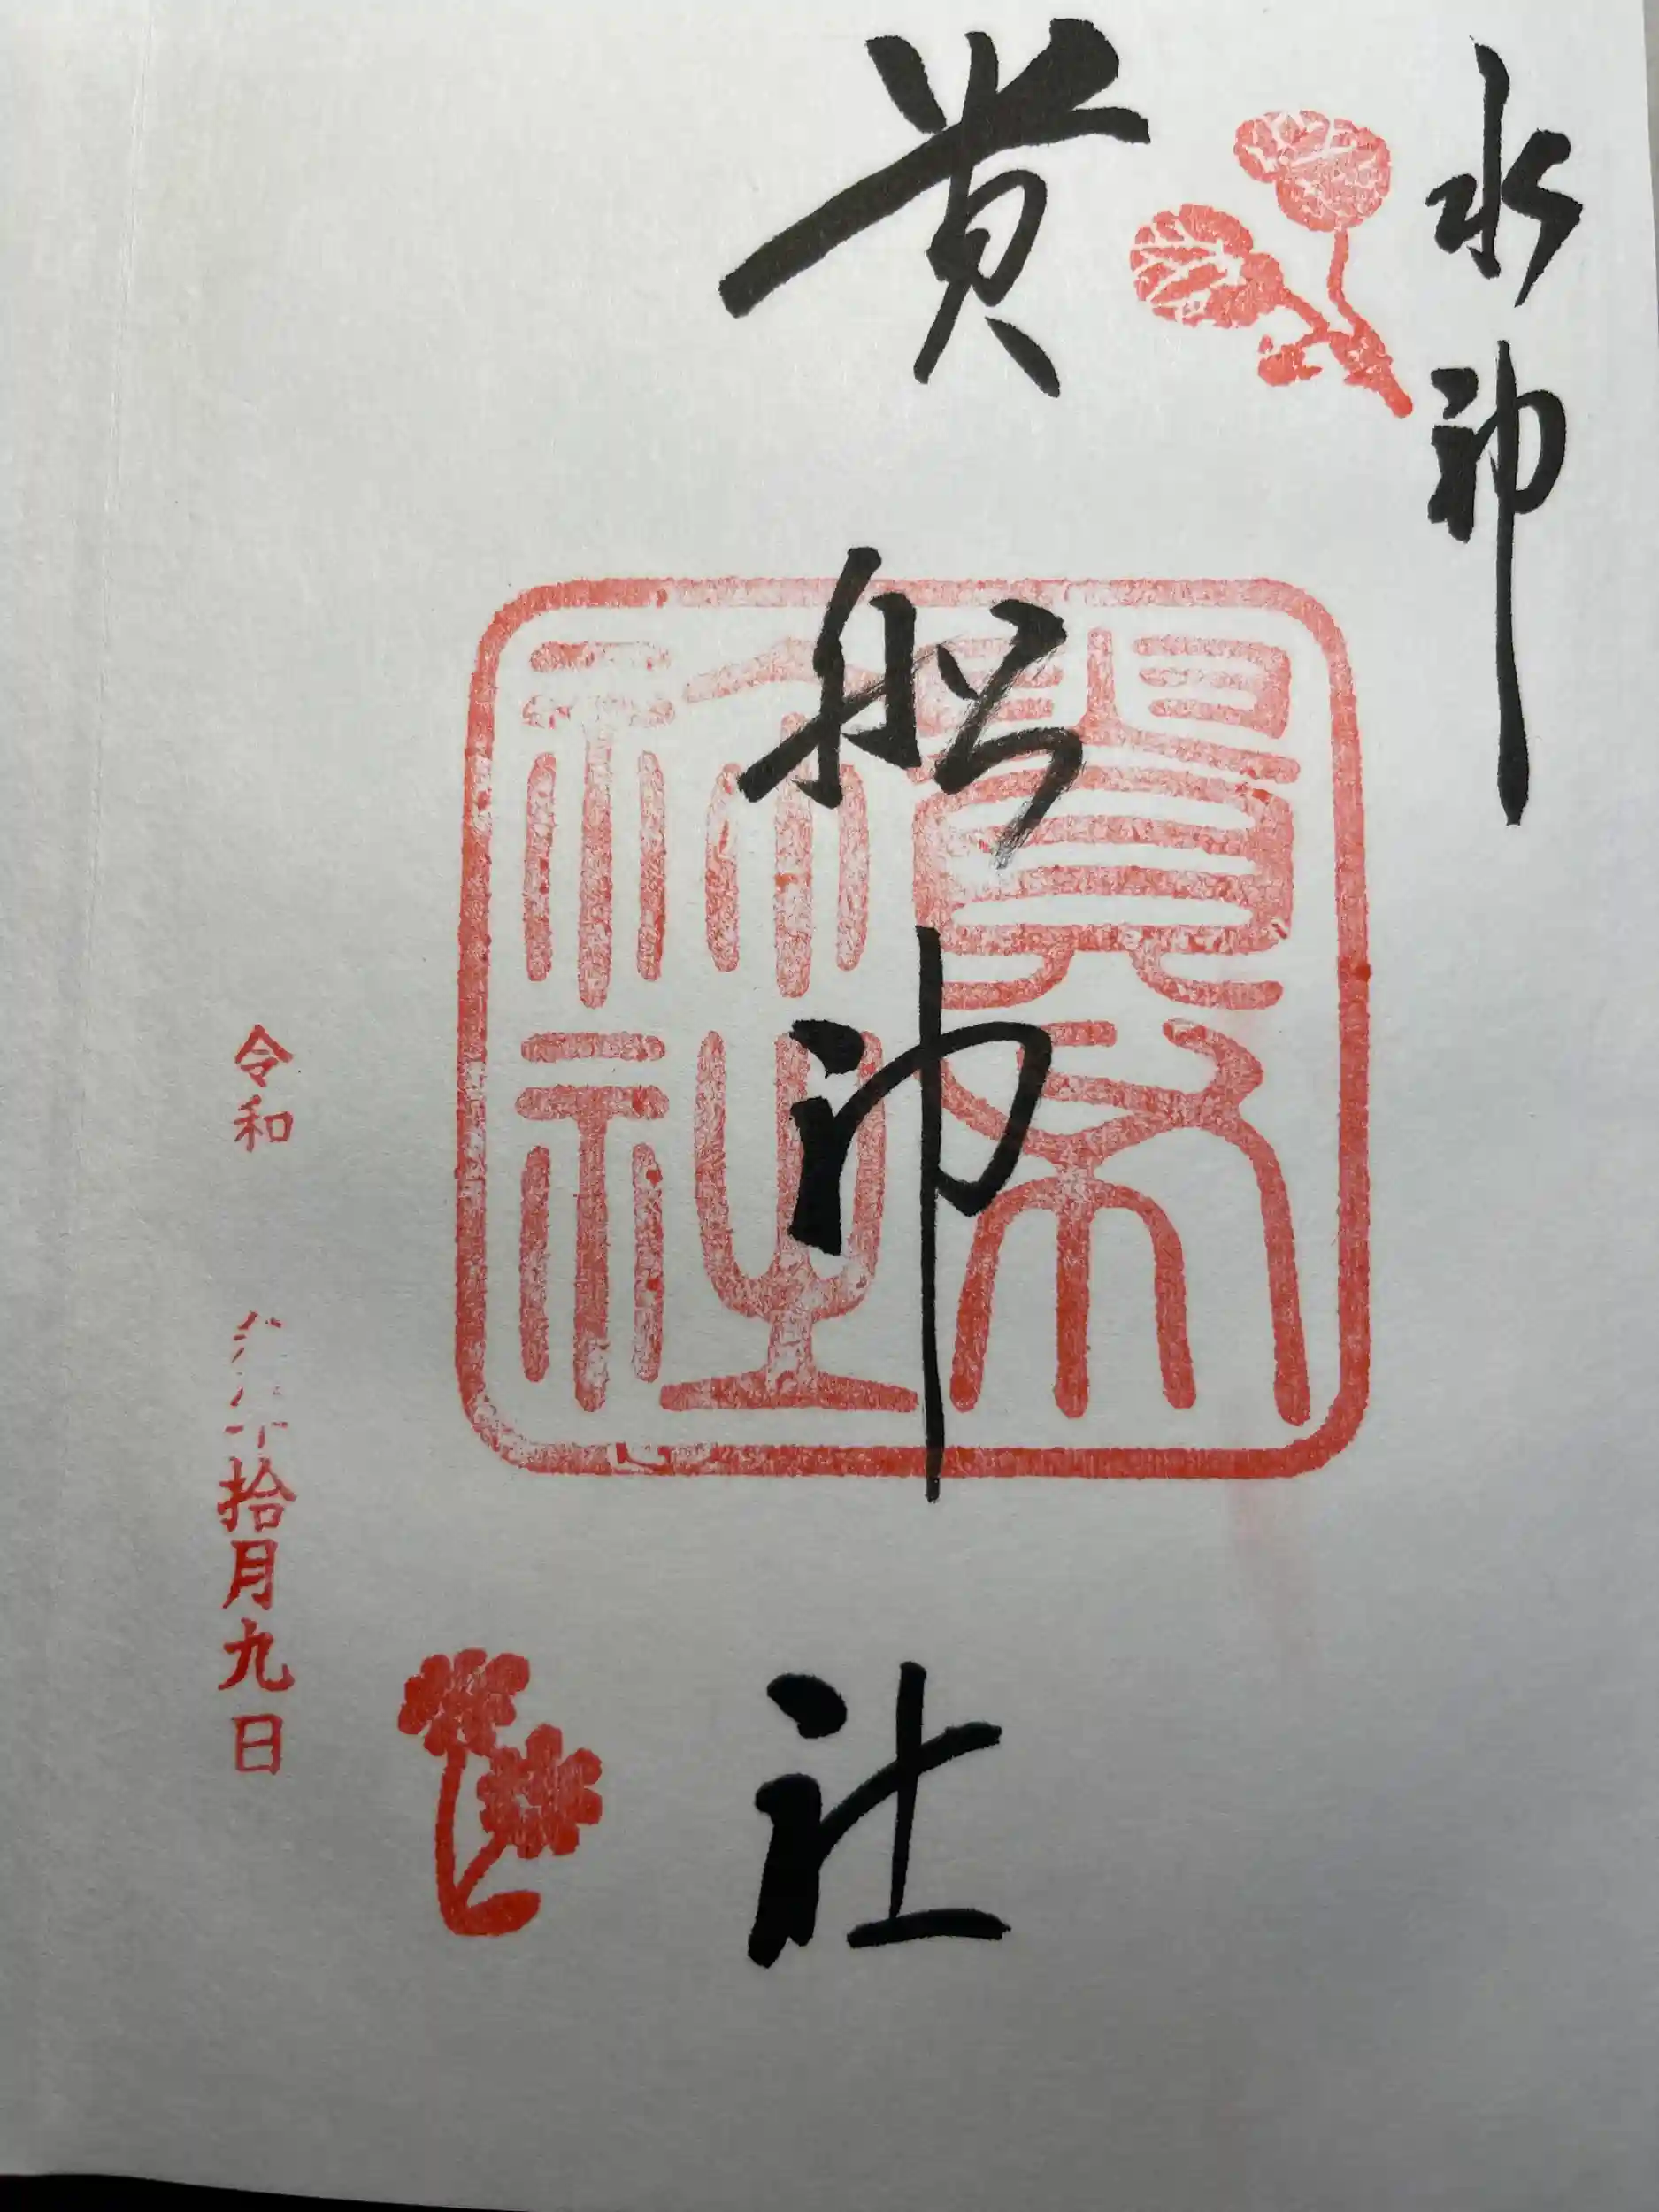 水神
貴船神社
貴布
祢社
令和 拾月九日